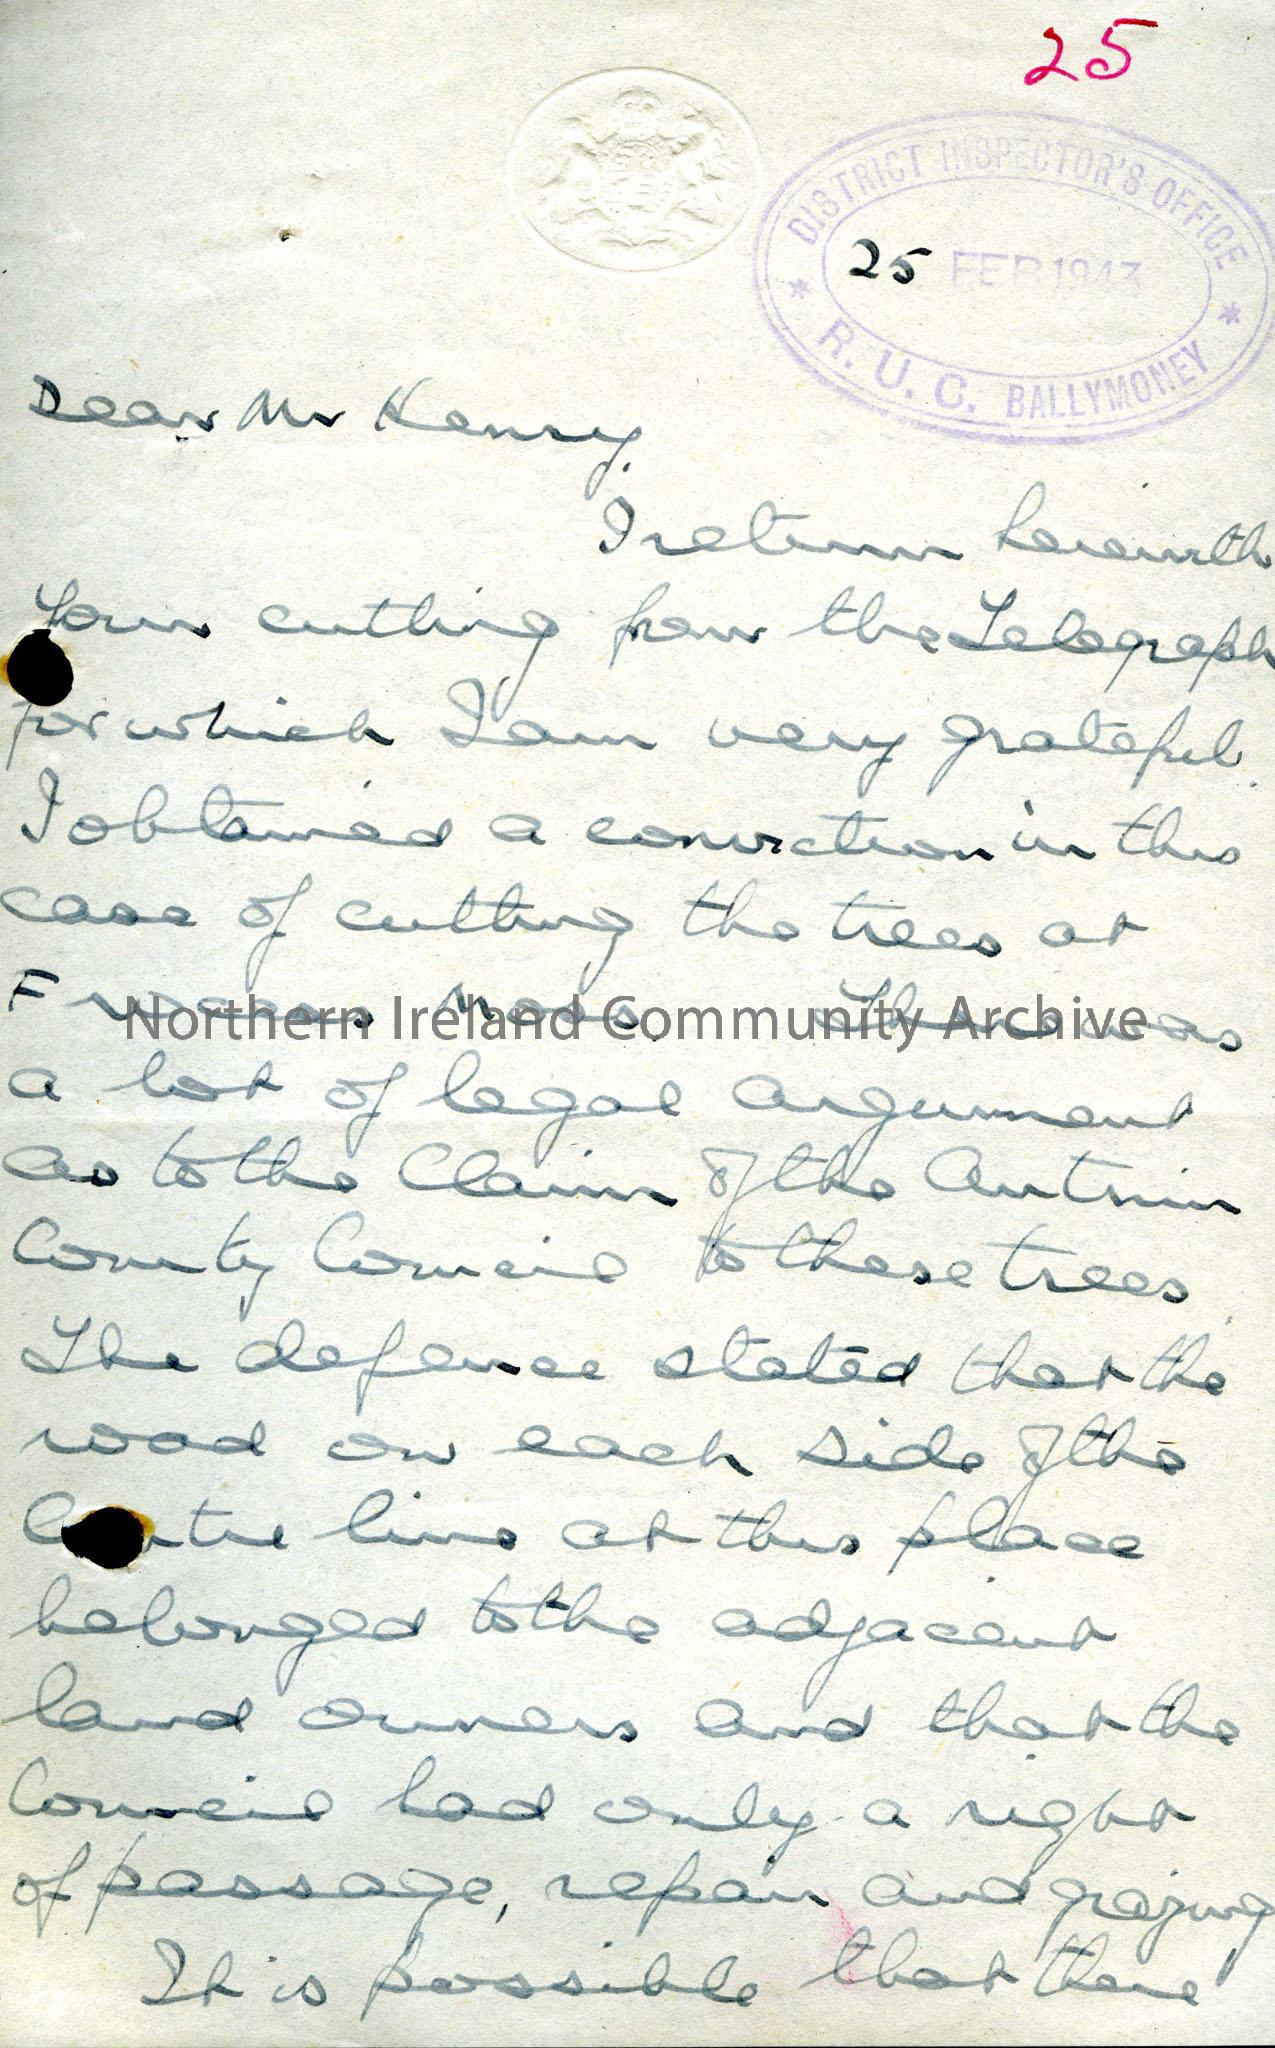 25
DISTRICT INSPECTOR'S OFFICE
25 FEB 1943
R. U. C. BALLYMONEY
Dear Mr Henry,
I return herewith
Your cutting from the Telegraph
for which I am very grateful.
I obtained a conviction in this
case of cutting the trees at
Moss. There was
Northern Ireland Community Archive
a lot of legal argument
as to the Claim of the Antrim
County Council to these trees.
The defence stated that the
road on each side of the
Centre line at this place
belonged to the adjacent
land owners and that the
Council had only a right
of passage, repair and grazing
It is possible that there